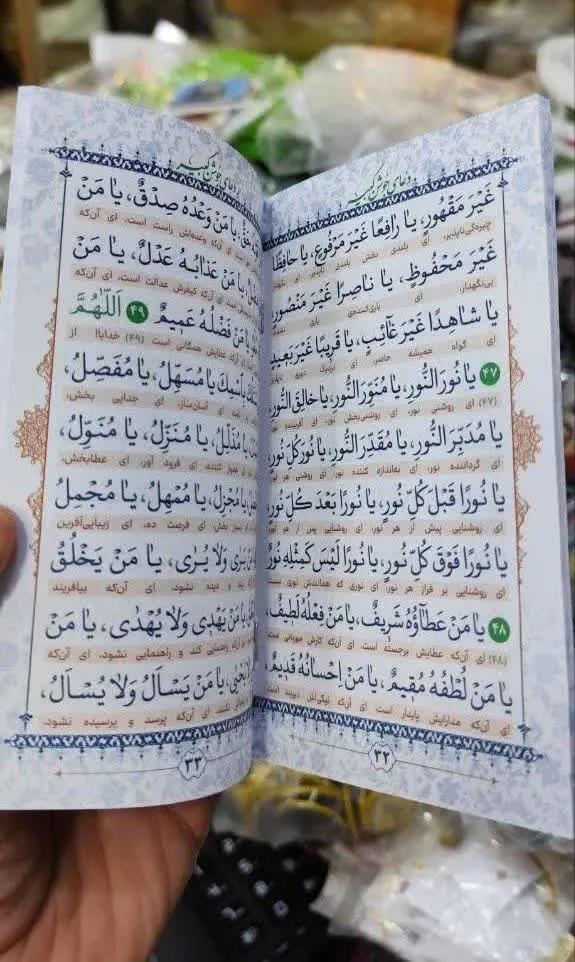 دعای جوشن کبیر
غَيْرَ مَقْهُورٍ، يا رافِعًا غَيْرَ مَرْفُوعٍ، يا حافِظًا
چیره‌گی‌ناپذیر، ای بلندی بخش بلندی ناپذیر، ای
غَيْرَ مَحْفُوظٍ، يا ناصِرًا غَيْرَ مَنْصُورٍ،
بی‌نگهدار، ای یاری‌کننده‌ی یاری
يا شاهِدًا غَيْرَ غآئِبٍ، يا قَريبًا غَيْرَ بَعيدٍ
ای گواه همیشه حاضر ای نزدیک دوری
۴۷ يا نُورَ النُّورِ، يا مُنَوِّرَ النُّورِ، يا خالِقَ النُّورِ،
(۴۷) ای روشنی نور، ای روشنی‌بخش نور، ای آفریننده
يا مُدَبِّرَ النُّورِ، يا مُقَدِّرَ النُّورِ، يا نُورَ كُلِّ نُورٍ،
ای گرداننده نور، ای به‌اندازه کننده نور، ای روشنی هر نور
يا نُورًا قَبْلَ كُلِّ نُورٍ، يا نُورًا بَعْدَ كُلِّ نُورٍ،
ای روشنایی پیش از هر نور، ای روشنایی پس از هر
يا نُورًا فَوْقَ كُلِّ نُورٍ، يا نُورًا لَيْسَ كَمِثْلِهِ نُورٌ
ای روشنایی بر فراز هر نور، ای نوری که همانندش نوری نیست
۴۸ يا مَنْ عَطآؤُهُ شَريفٌ، يا مَنْ فِعْلُهُ لَطيفٌ،
(۴۸) ای آن‌که عطایش برجسته است، ای آن‌که کارش مهربانی
يا مَنْ لُطْفُهُ مُقيمٌ، يا مَنْ اِحْسانُهُ قَديمٌ،
ای آن‌که مدارایش پایدار است، ای آن‌که نیکی‌اش دیرینه است
۳۲
دعای جوشن کبیر
حَقٌّ، يا مَنْ وَعْدُهُ صِدْقٌ، يا مَنْ
ای آن‌که وعده‌اش راست است، ای آن‌که
يا مَنْ عَذابُهُ عَدْلٌ، يا مَنْ
است، ای آن‌که کیفرش عدالت است، ای آن‌که
يا مَنْ فَضْلُهُ عَميمٌ ۴۹ اَللّٰهُمَّ
عطایش همگانی است (۴۹) خدایا! از
بِاسْمِكَ يا مُسَهِّلُ، يا مُفَصِّلُ،
ای آسان‌ساز، ای جدایی بخش،
يا مُذَلِّلُ، يا مُنَزِّلُ، يا مُنَوِّلُ،
ای هموار کننده، ای فرود آور، ای عطابخش،
يا مُجْزِلُ، يا مُمْهِلُ، يا مُجْمِلُ
بخش، ای فرصت ده، ای زیبایی‌آفرین
يَرىٰ وَلا يُرىٰ، يا مَنْ يَخْلُقُ
و دیده نشود، ای آن‌که بیافریند
يا مَنْ يَهْدي وَلا يُهْدىٰ، يا مَنْ
راهنمایی کند و راهنمایی نشود، ای آن‌که
يا مَنْ يَسْاَلُ وَلا يُسْاَلُ،
نشود، ای آن‌که پرسد و پرسیده نشود،
۳۳